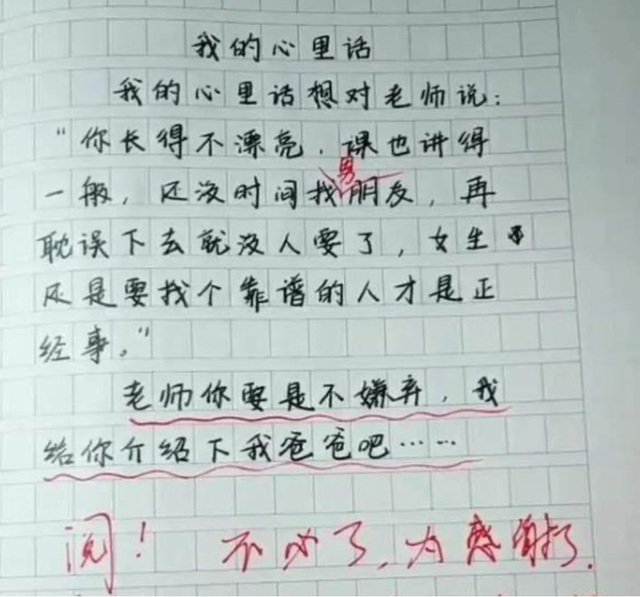 我的心里话
我的心里话想对老师说：
“你长得不漂亮，课也讲得
一般，还没时间找男朋友，再
耽误下去就没人要了，女生
还是要找个靠谱的人才是正
经事。”
老师你要是不嫌弃，我
给你介绍下我爸爸吧……
阅！ 不必了，